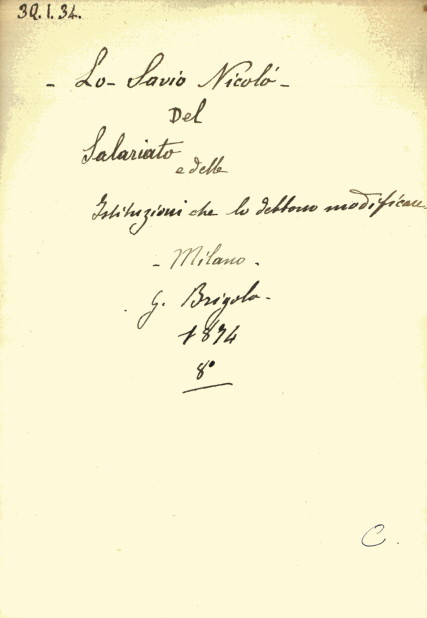 3Q.1.34.
- Lo- Savio Nicolò -
Del
Salariato
e delle
Istituzioni che lo debbono modificare
- Milano -
G. Brigola -
1874
8°
C.